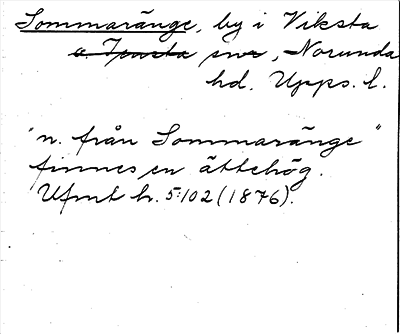 Sommaränge, by i Viksta
snr, Norunda
hd. Upps. l.
"n. från Sommaränge"
finnes en ättehög.
Ufmt h. 5:102 (1876).